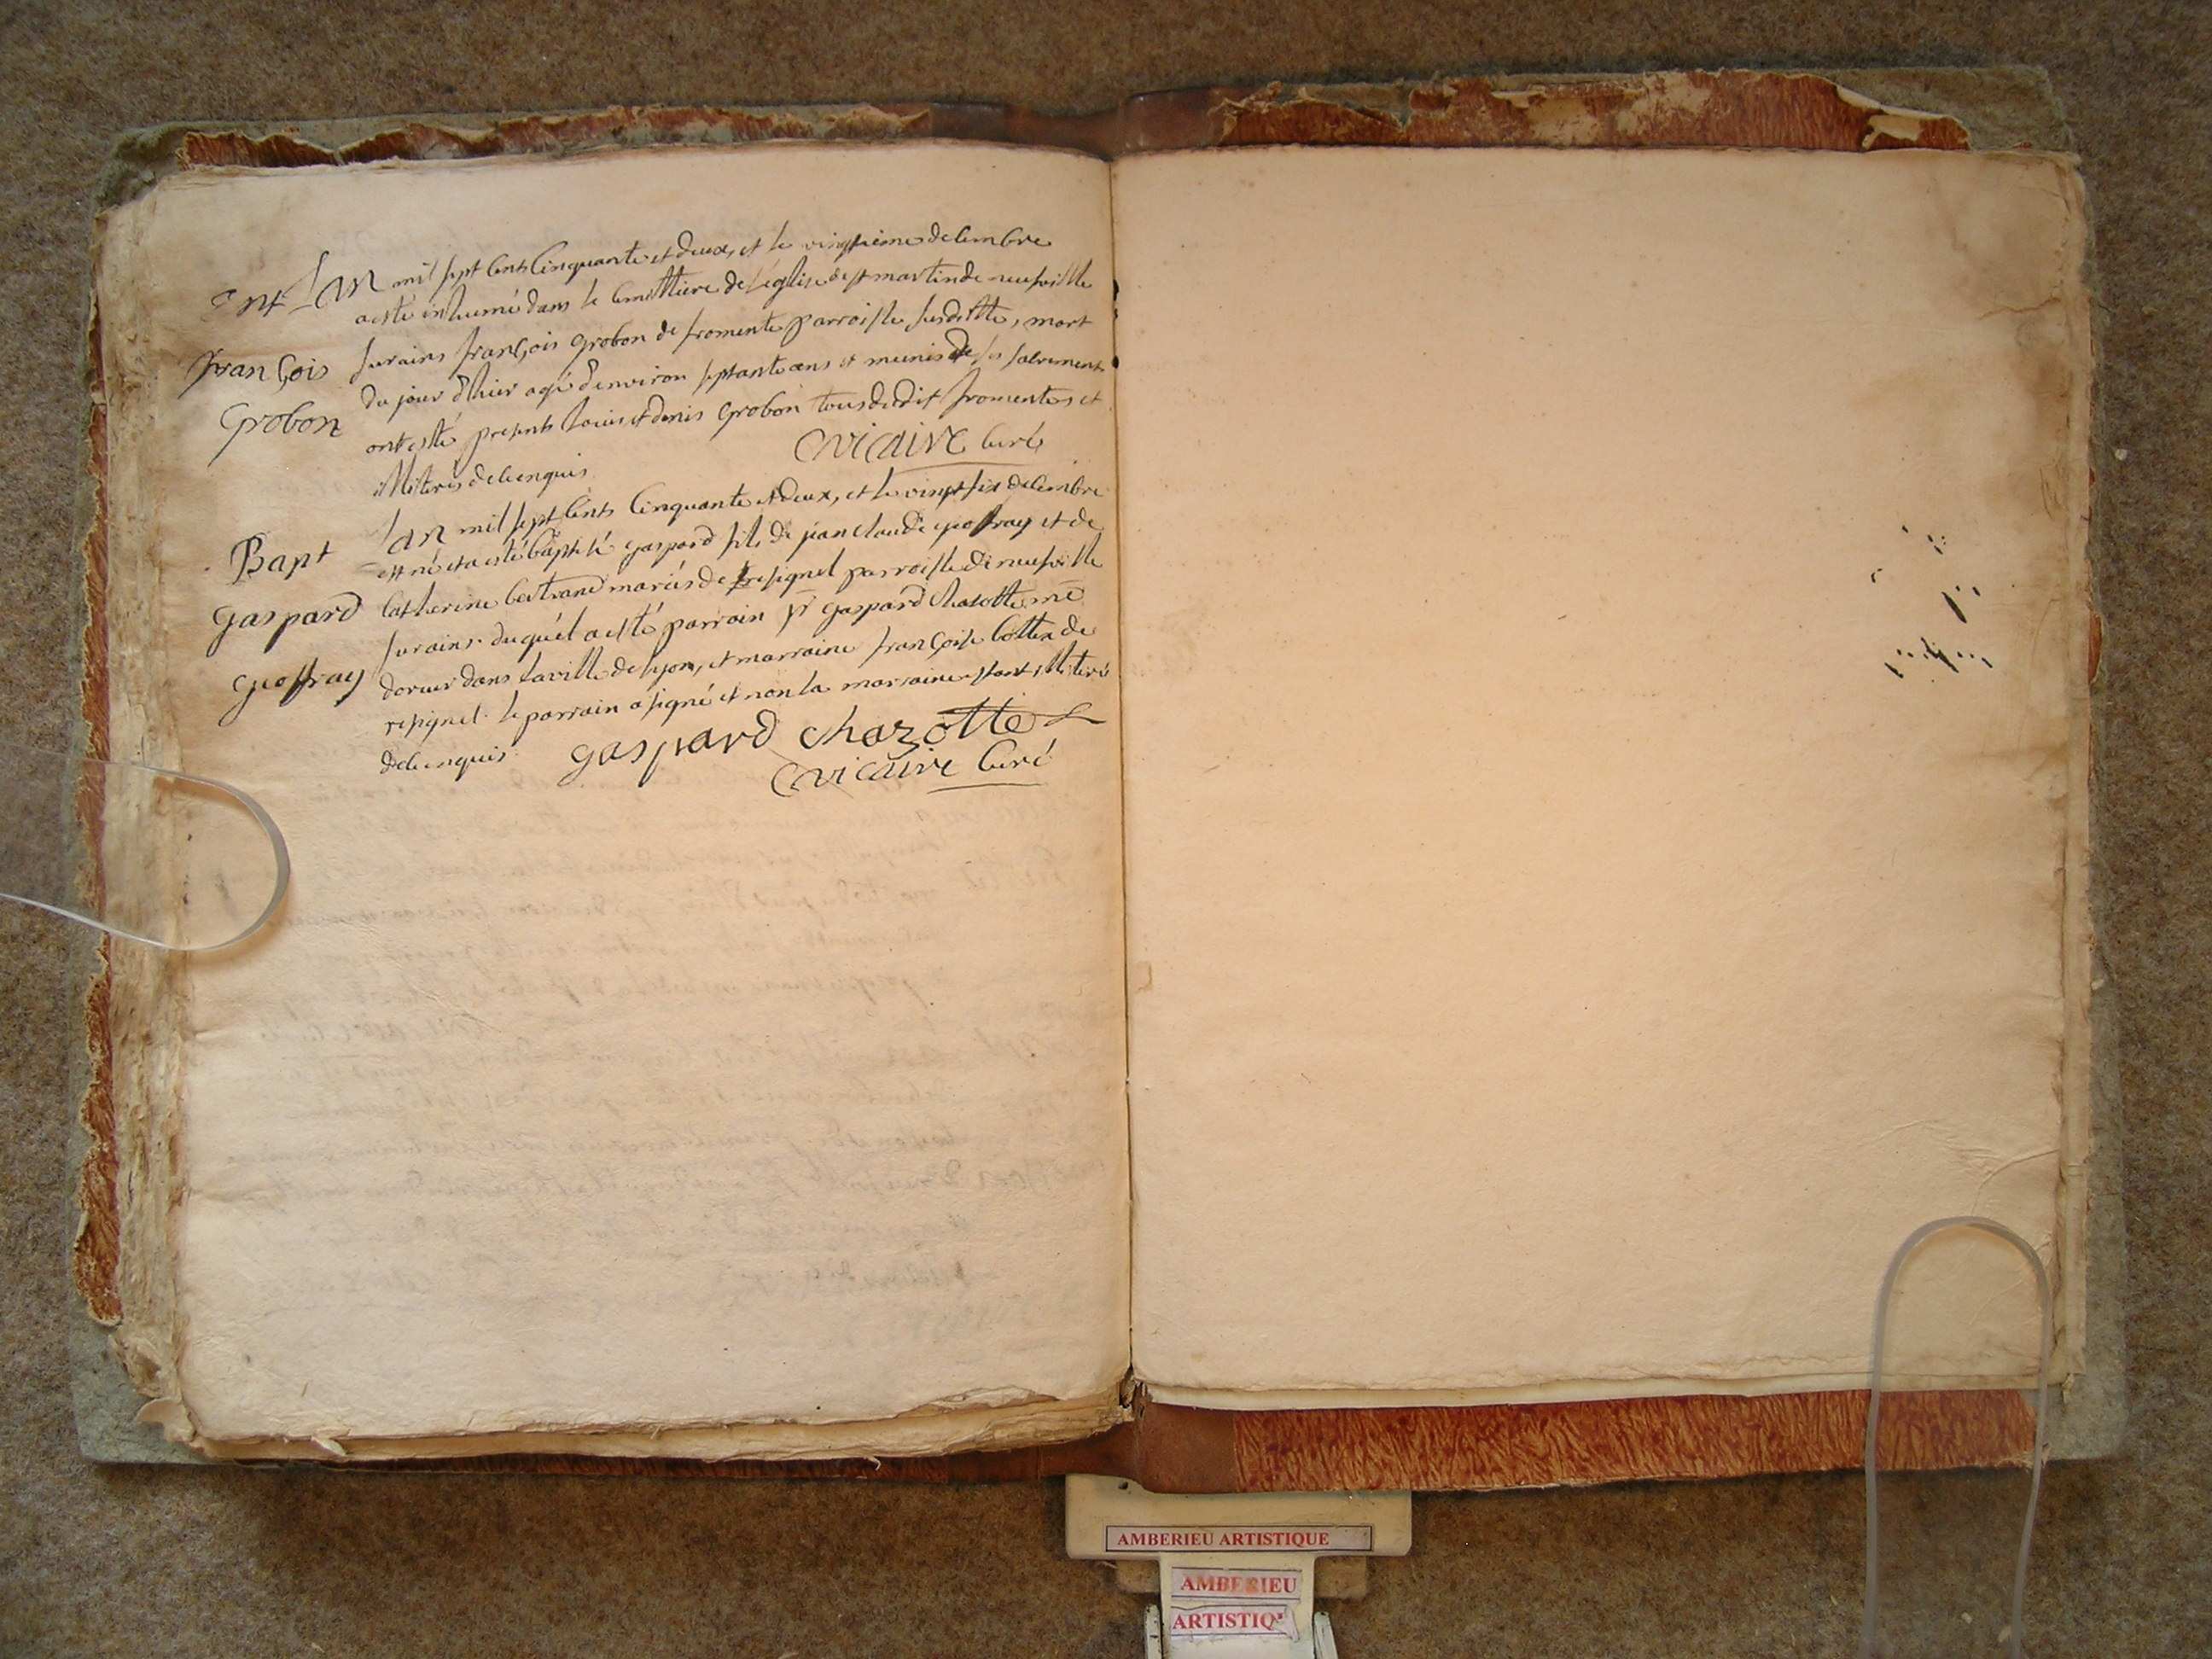 Ent
françois
Grobon
L'an mil sept cents cinquante et deux, et le vingtieme decembre
a esté inhumé dans le cimettiere de l'église de st martin de neufville
surains françois grobon de fromente parroisse susditte, mort
du jour d'hier agé d'environ septante ans et munis de ses sacrements
ont esté presents Louis et denis grobon tous dudit fromentes et
illiterés de ce enquis
Cvicaire curé
Bapt
gaspard
geoffray
L'an mil sept cents cinquante et deux, et le vingt six decembre
est né et a esté baptisé gaspard fils de jean claude geoffray et de
catherine bertrand mariés de resignel parroisse de neufville
surains. duquel a esté parrain sr gaspard chazotte me
doreur dans la ville de lyon, et marraine françoise cottex de
resignel. le parrain a signé et non la marraine estant illiteré
de ce enquis.
gaspard chazotte
Cvicaire curé
AMBERIEU ARTISTIQUE
AMBERIEU
ARTISTIQ